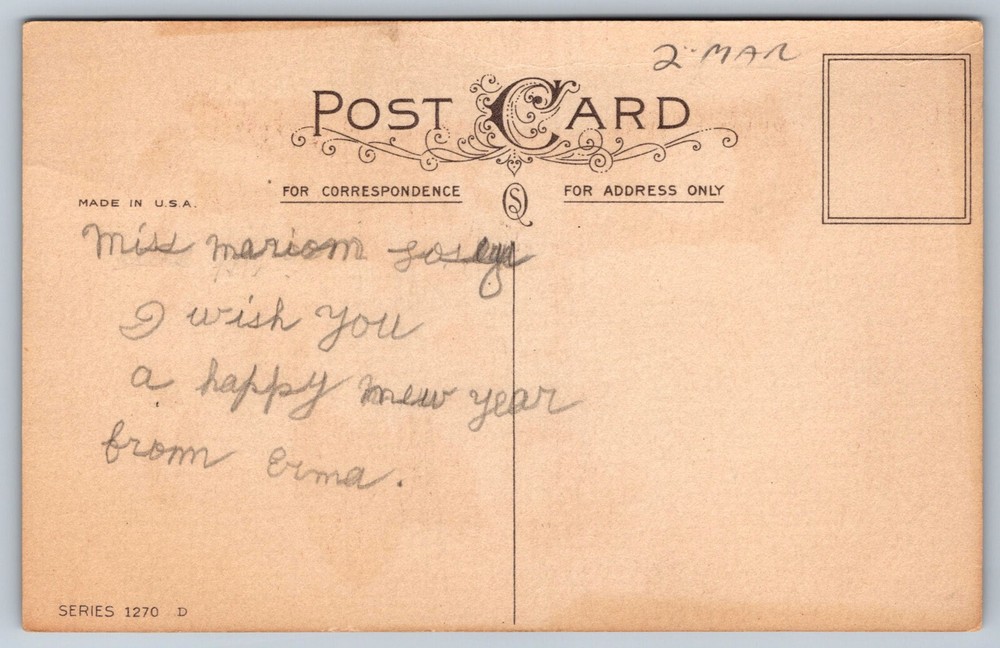 2 MAR
POST CARD
FOR CORRESPONDENCE
FOR ADDRESS ONLY
MADE IN U.S.A.
Miss Mariom
I wish you
a happy mew year
from Erma.
SERIES 1270 D